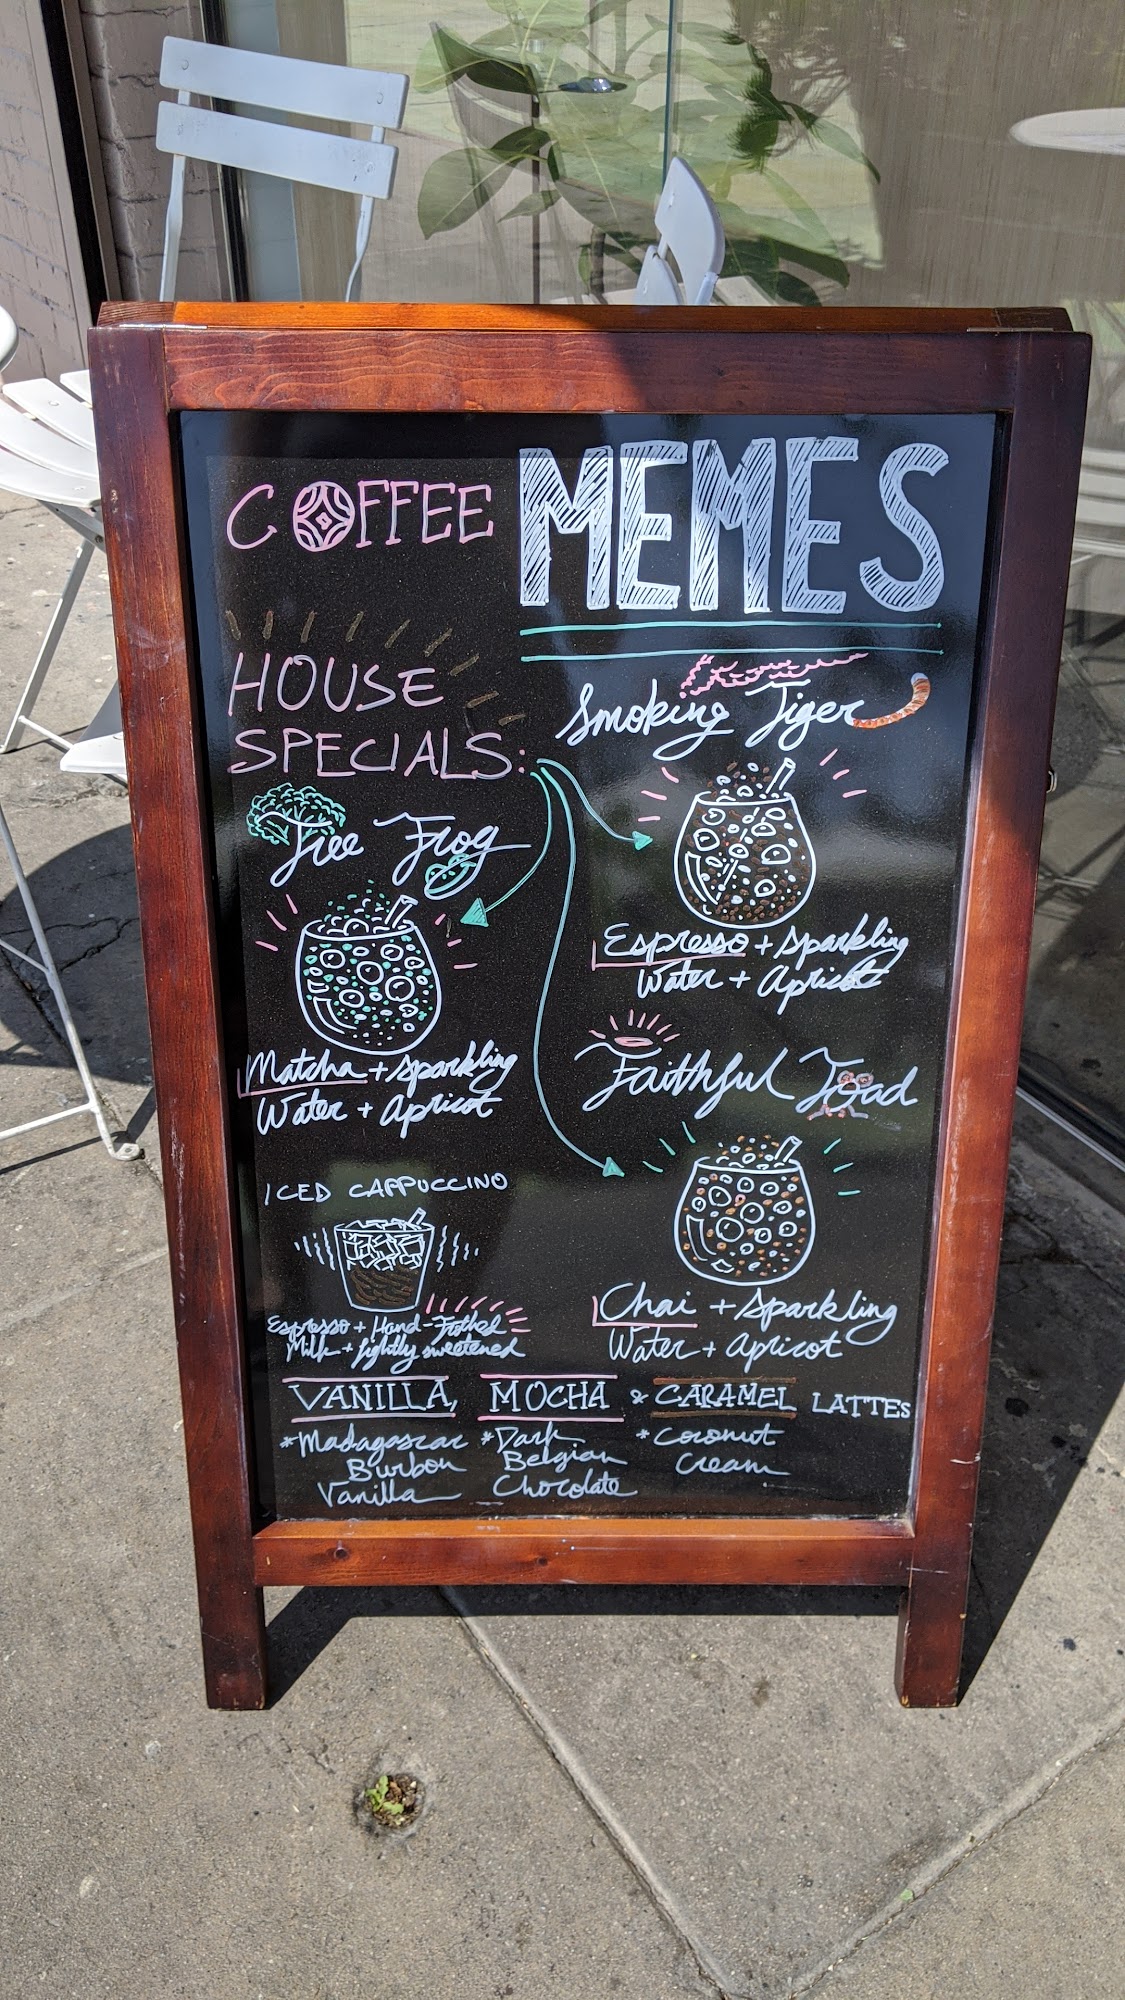 COFFEE MEMES
HOUSE
SPECIALS:
Tree Frog
Matcha + Sparkling
Water + Apricot
Smoking Tiger
Espresso + Sparkling
Water + Apricot
Faithful Toad
Chai + Sparkling
Water + Apricot
ICED CAPPUCCINO
Espresso + Hand-Frothed
Milk + lightly sweetened
VANILLA, MOCHA & CARAMEL LATTES
*Madagascar
Burbon
Vanilla
*Dark
Belgian
Chocolate
*Coconut
Cream